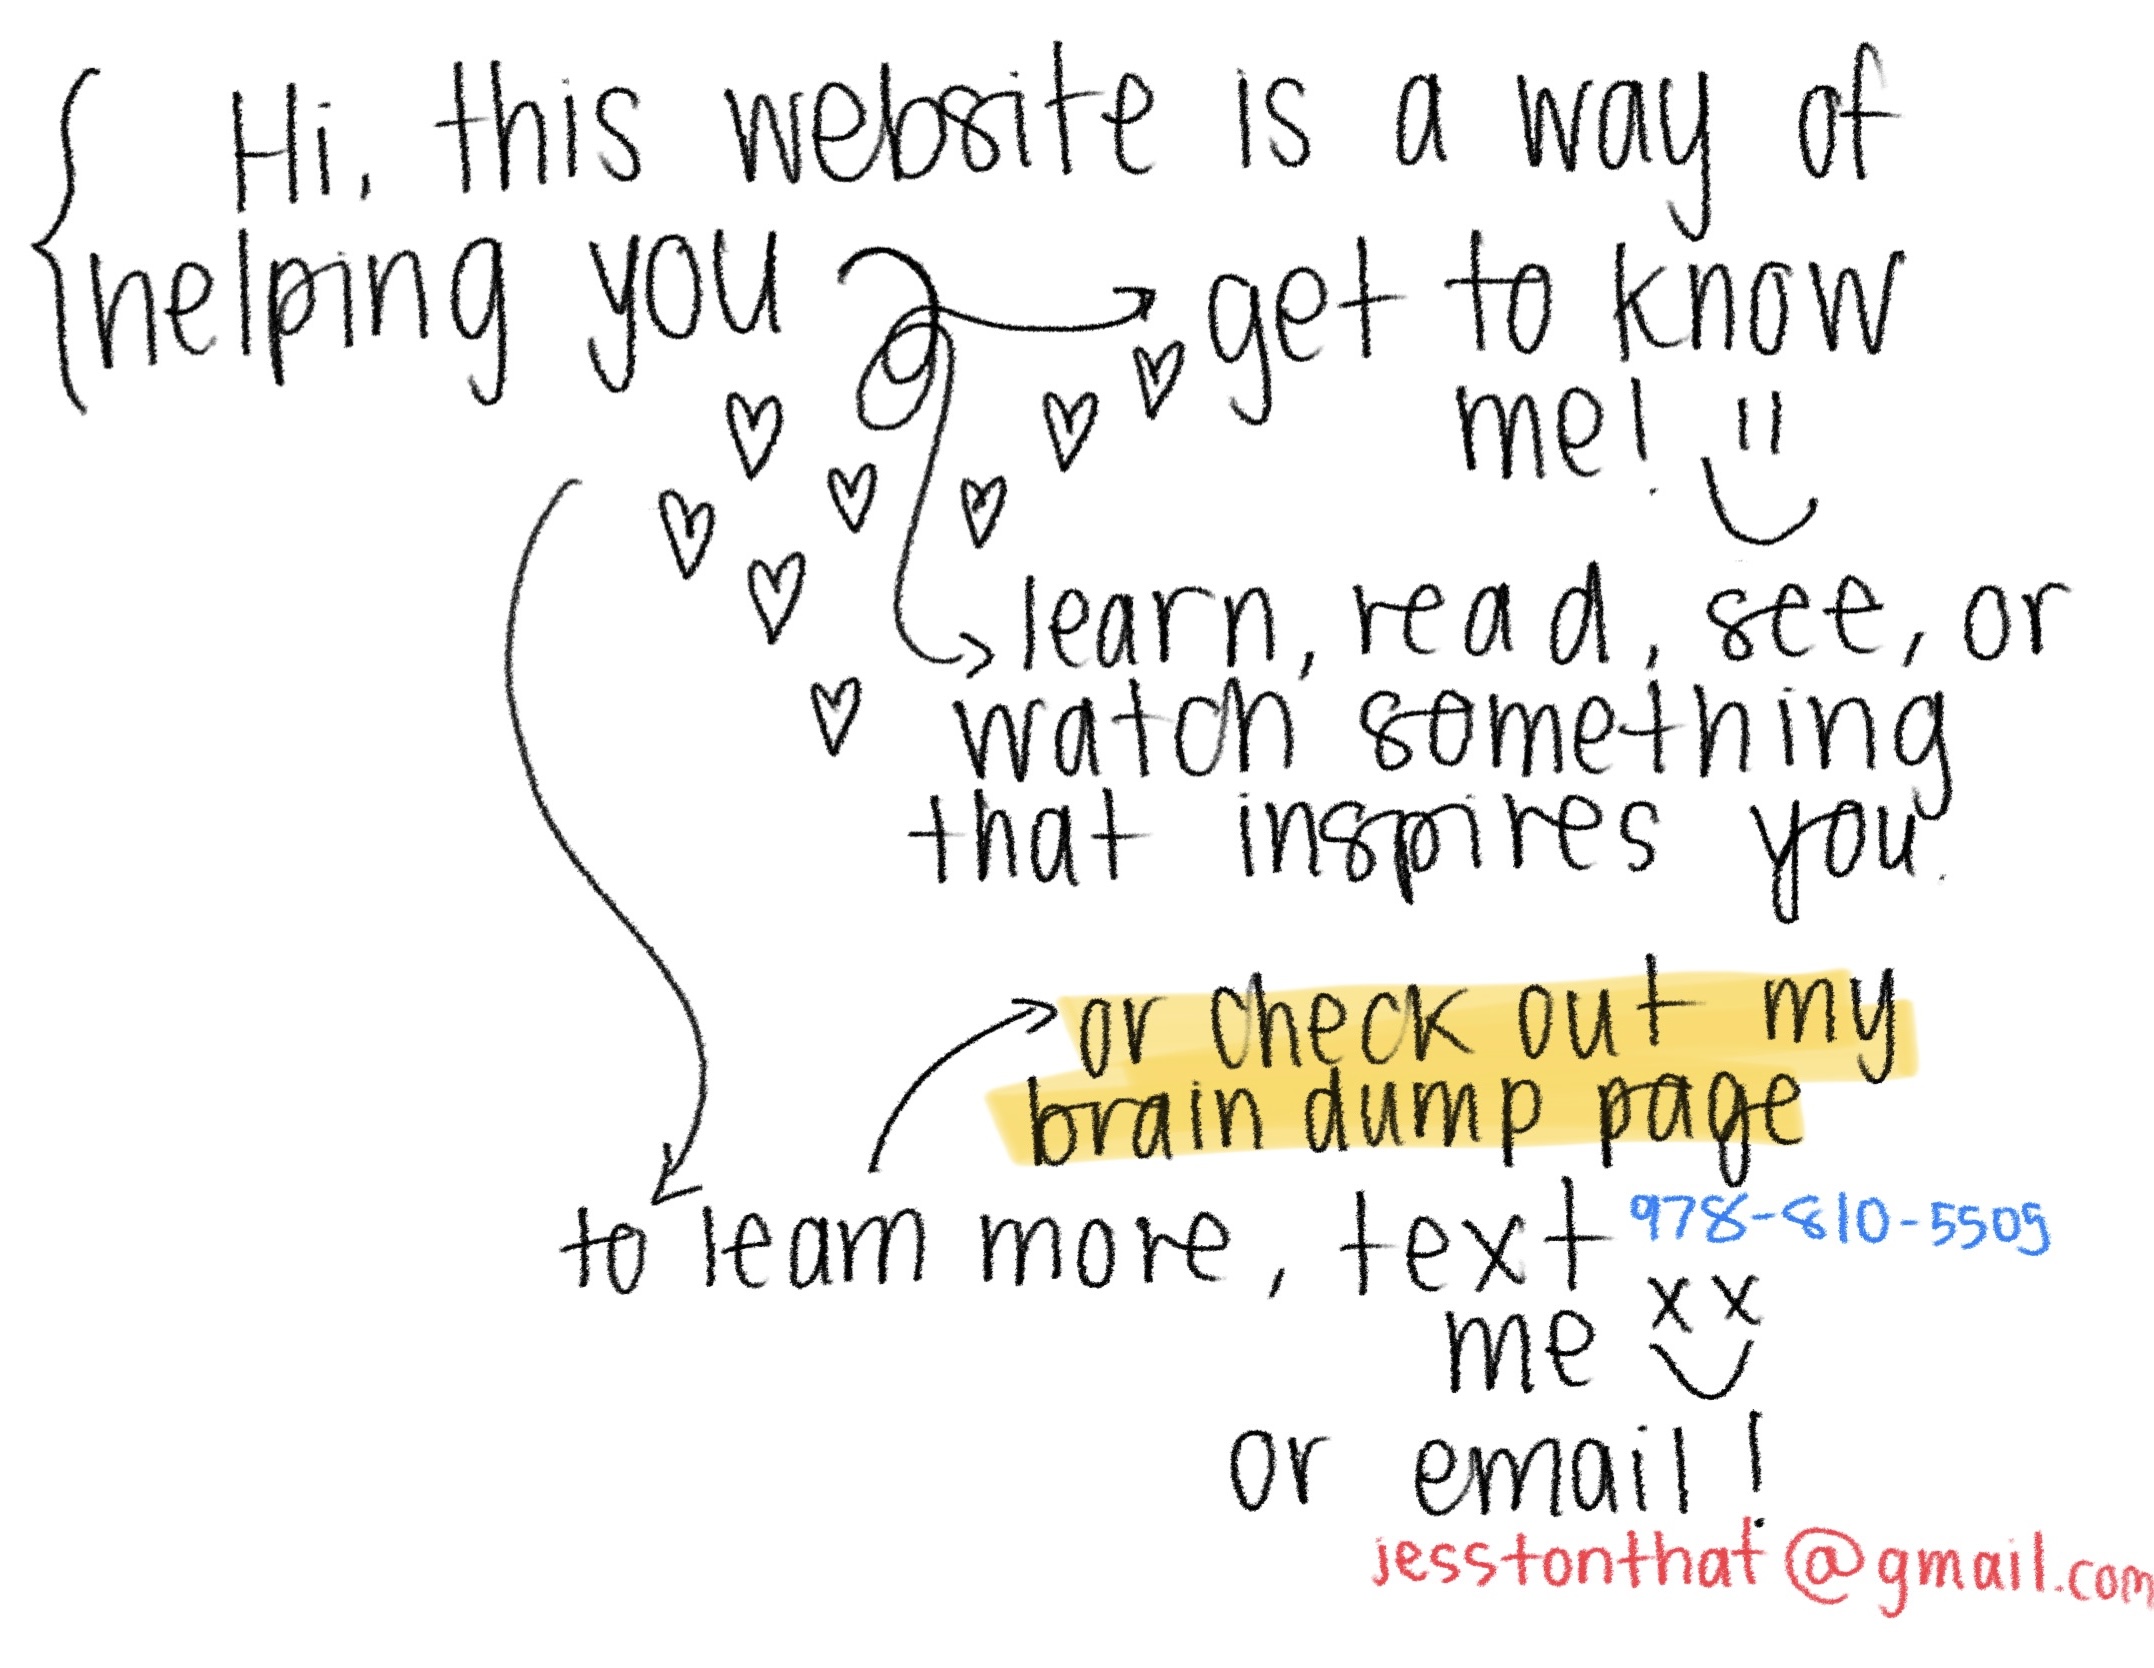 Hi, this website is a way of
helping you
get to know
me!
learn, read, see, or
watch something
that inspires you.
or check out my
brain dump page
to learn more, text
978-810-5505
me
or email!
jesstonthat@gmail.com